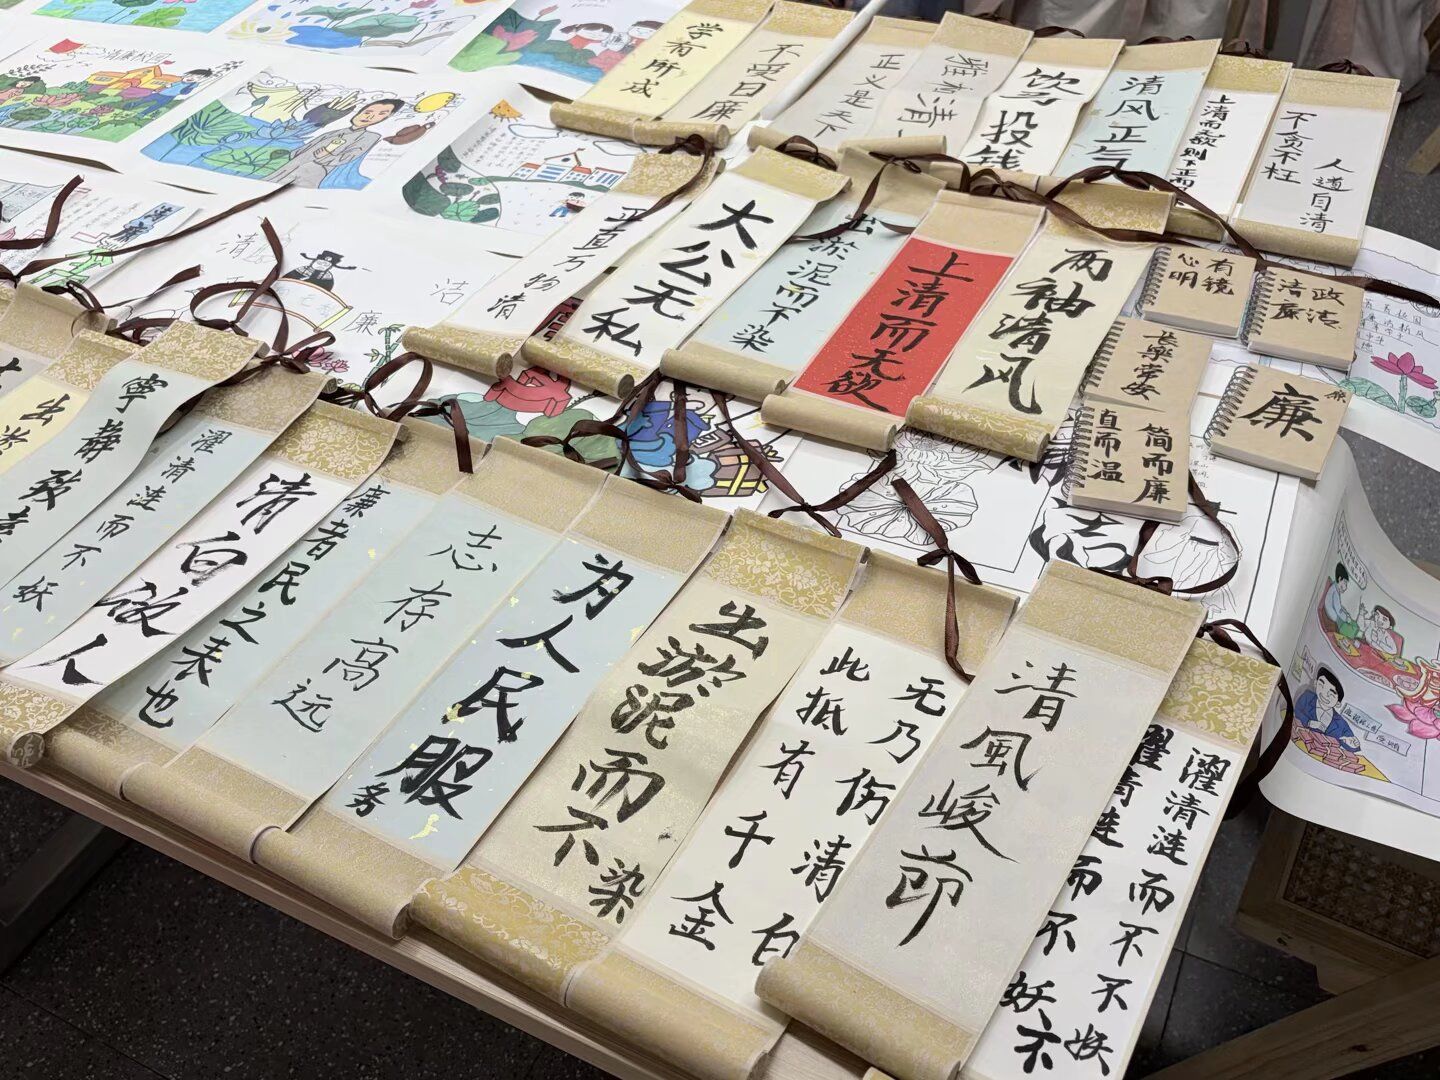 学有所成
不受曰廉
正义是天下
雅志清
饮马投钱
清风正气
上清而无欲则下正而
人道自清
不贪不枉
清廉校园
廉
正直万物清
大公无私
出淤泥而不染
上清而无欲
两袖清风
有镜
心明
政洁
清廉
长乐常安
简而廉
直而温
廉
清
洁
廉
洁
出淤
宁静致远
濯清涟而不妖
清白做人
廉者民之表也
志存高远
为人民服务
出淤泥而不染
无乃伤清白
此抵有千金
清風峻節
濯清涟而不妖
濯清涟而不妖